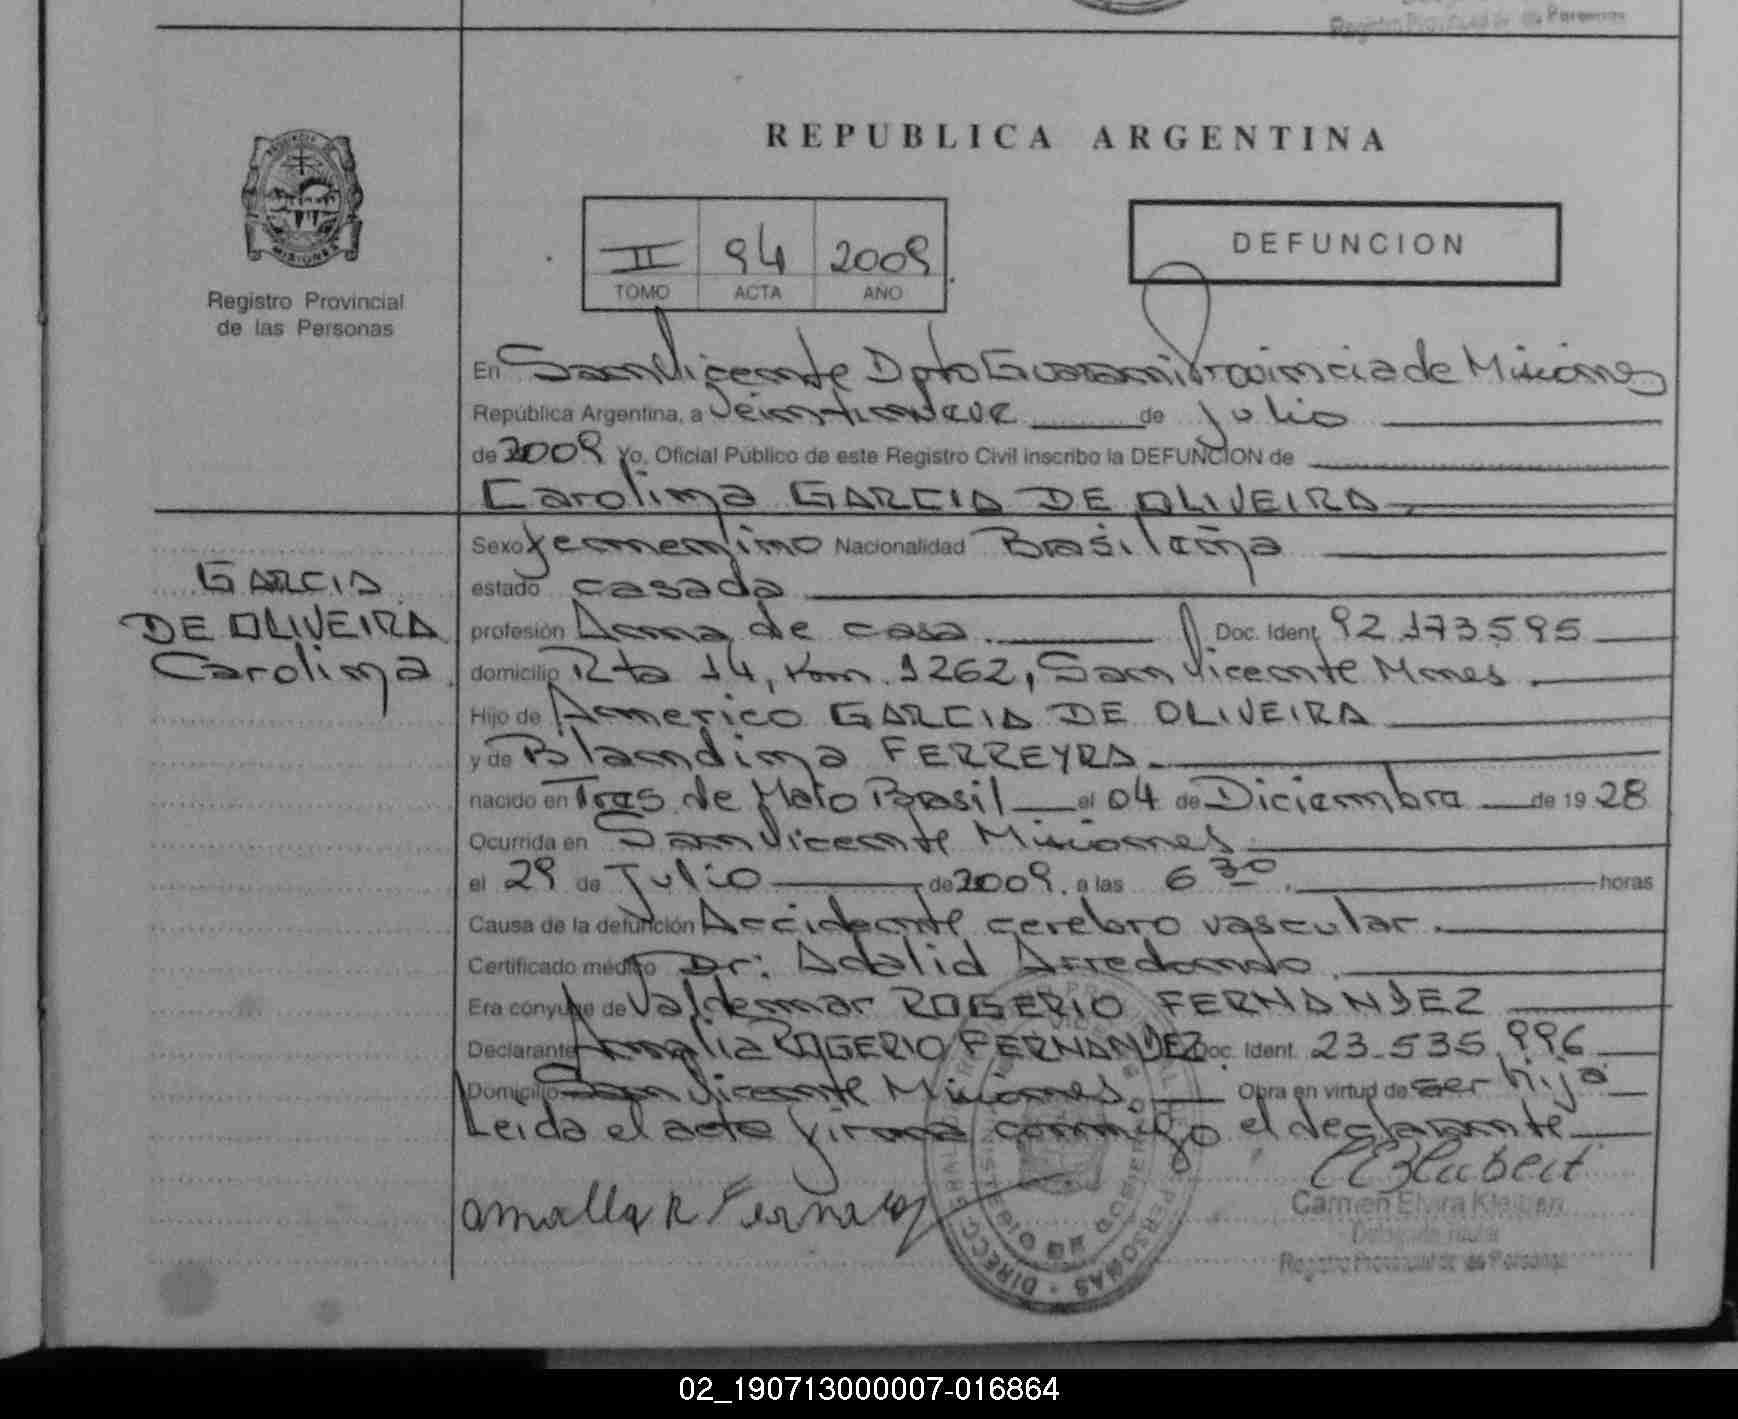 Registro Provincial de las Personas
REPUBLICA ARGENTINA
PROVINCIA DE
MISIONES
Registro Provincial
de las Personas
II 94 2009
TOMO ACTA AÑO
DEFUNCION
En San Vicente Dpto Guarani Provincia de Misiones
República Argentina, a Veintinueve de julio
de 2009 Yo, Oficial Público de este Registro Civil inscribo la DEFUNCION de
Carolina GARCIA DE OLIVEIRA
GARCIA
DE OLIVEIRA
Carolina
Sexo femenino Nacionalidad Brasileña
estado casada
profesión Ama de casa Doc. Ident. 92.173.595
domicilio Rta 14, Km. 1262, San Vicente Mnes.
Hijo de Americo GARCIA DE OLIVEIRA
y de Blandina FERREYRA
nacido en Tras de Maio Brasil el 04 de Diciembre de 1928
Ocurrida en San Vicente Misiones
el 29 de Julio de 2009. a las 6 30. horas
Causa de la defunción Accidente cerebro vascular.
Certificado médico Dr: Adalid Arredondo.
Era cónyuge de Valdemar ROGERIO FERNANDEZ
Declarante Amalia ROGERIO FERNANDEZ Doc. Ident. 23.535.996
Domicilio San Vicente Misiones. Obra en virtud de ser hija
Leida el acta firma conmigo el declarante
Carmen Elvira
Registro Provincial de las Personas
02_190713000007-016864